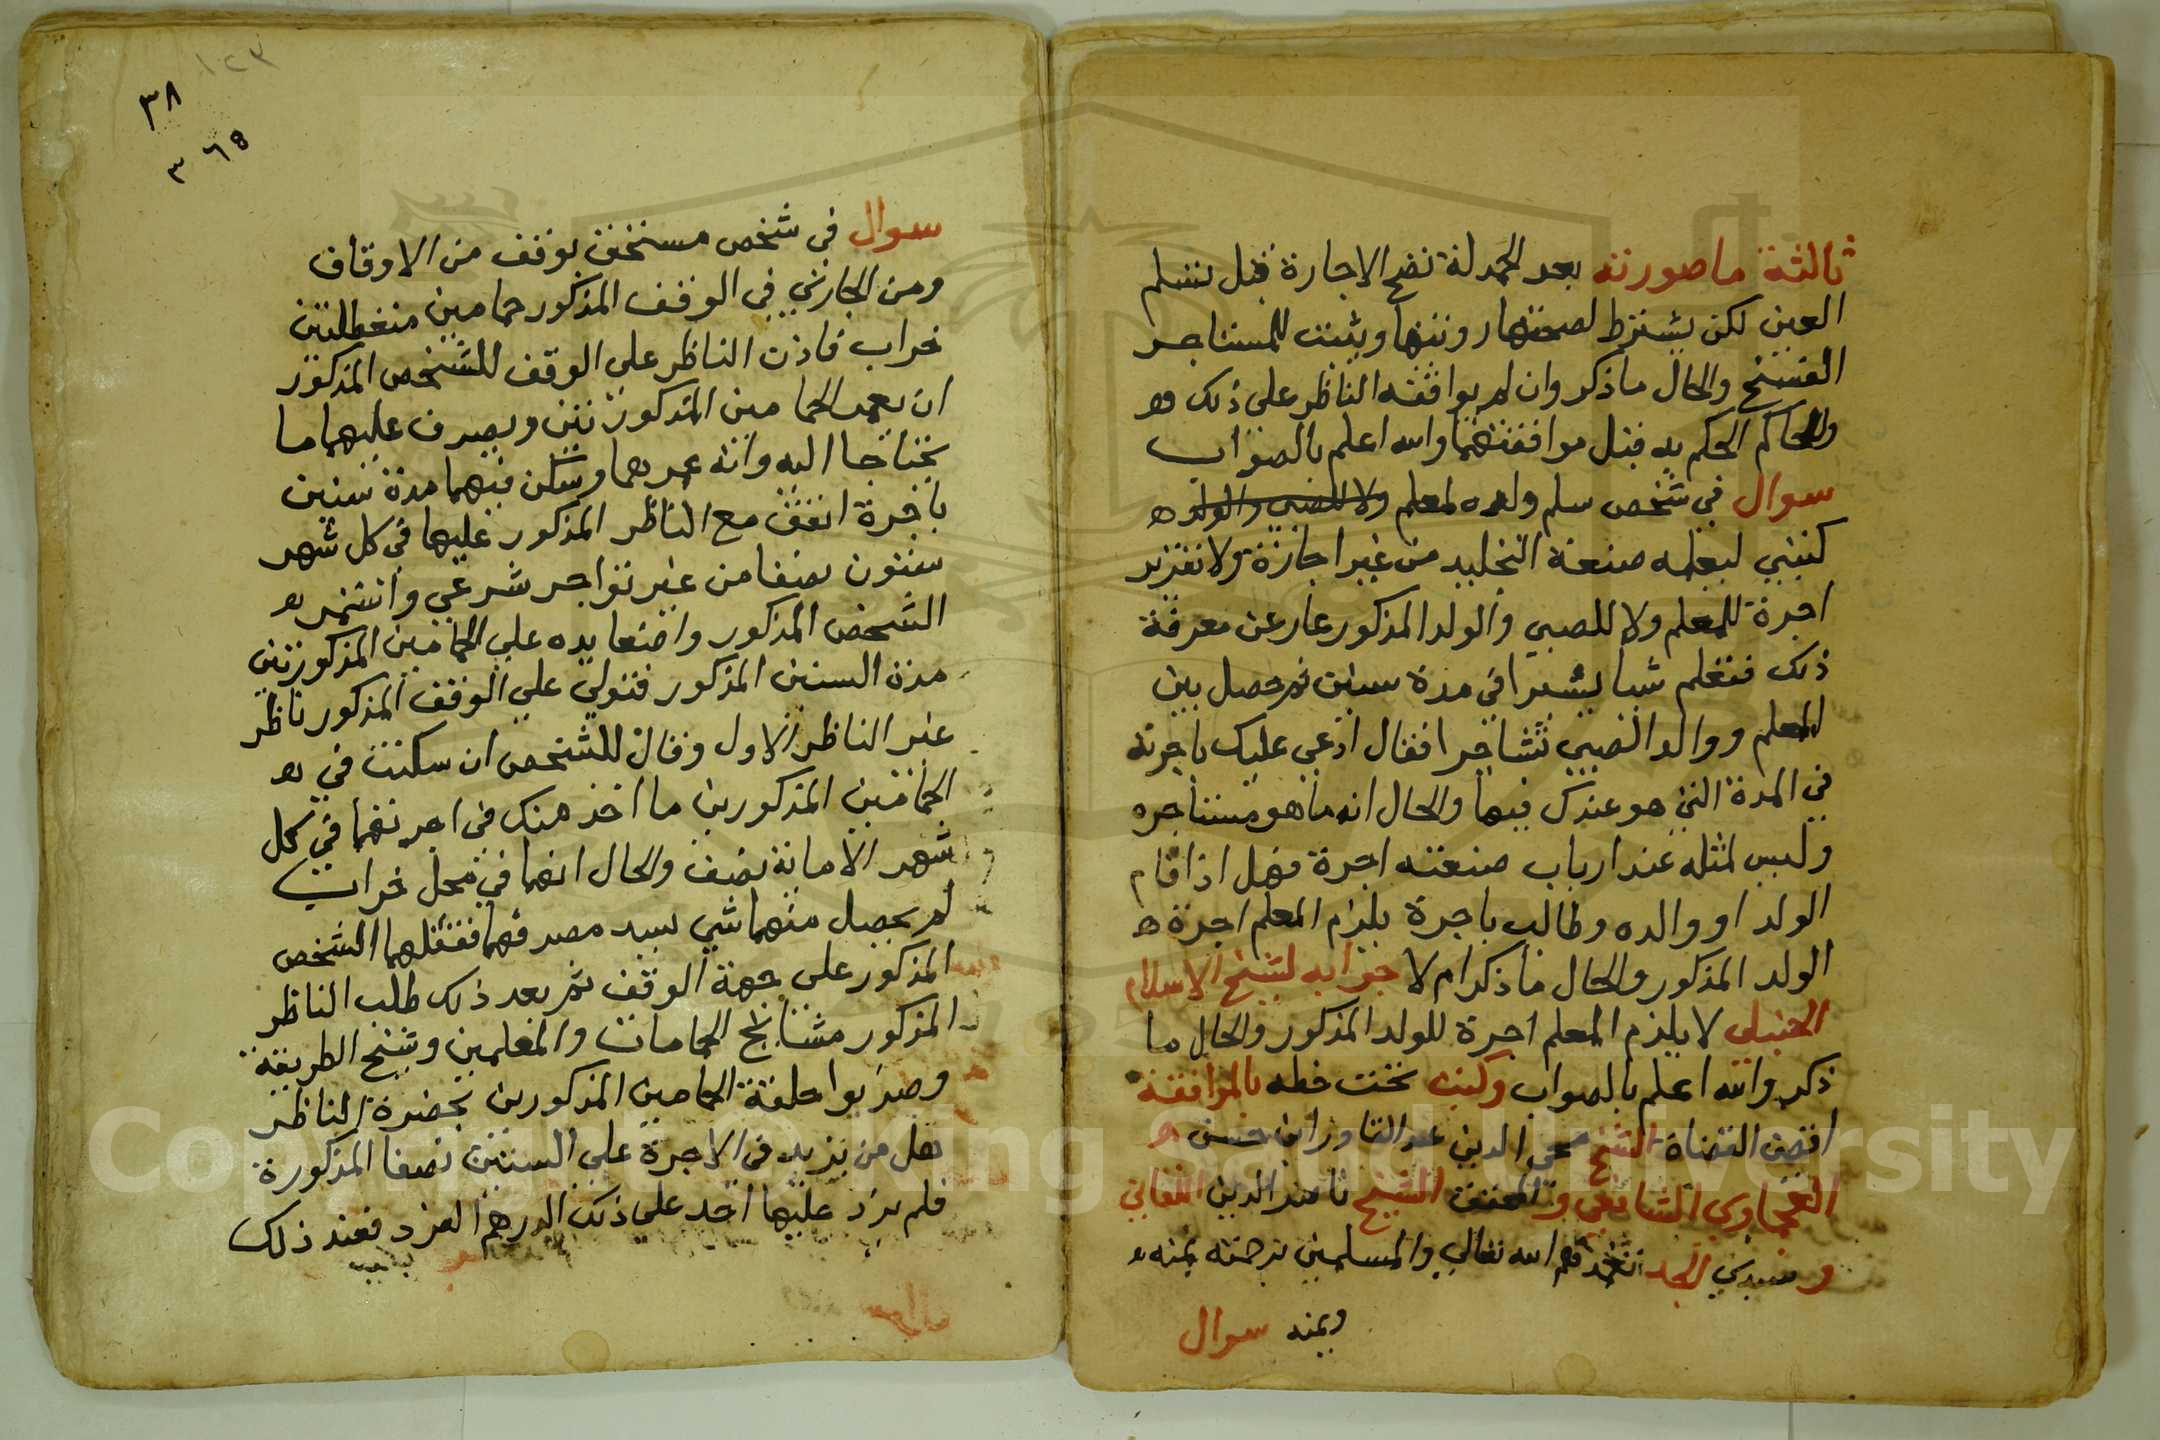 ثالثة ما صورته بعد الحمدلة تصح الاجارة قبل تسلم
العين لكن يشترط لصحتها رويتها ويثبت للمستاجر
الفسخ والحال ما ذكر وان لم يوافقه الناظر على ذلك
وللحاكم الحكم به قبل موافقتهما والله اعلم بالصواب
سوال في شخص سلم ولده لمعلم ولا للصبي والولد
كتبي ليعلمه صنعة التجليد من غير اجازة ولا تقرير
اجرة للمعلم ولا للصبي والولد المذكور عار عن معرفة
ذلك فتعلم شيا يسيرا في مدة سنين ثم حصل بين
المعلم ووالد الصبي تشاجر فقال ادعي عليك باجرته
في المدة التي هو عندك فيها والحال انه ما هو مستاجره
وليس لمثله عند ارباب صنعته اجرة فهل اذا قام
الولد او والده وطالب باجرة يلزم المعلم اجرة
الولد المذكور والحال ما ذكر ام لا جوابه لشيخ الاسلام
الحنبلي لا يلزم المعلم اجرة للولد المذكور والحال ما
ذكر والله اعلم بالصواب وكتب تحت خطه بالموافقة
اقضى القضاة الشيخ محي الدين عبد القادر ابن حسن
الشافعي والمحقق الشيخ ناصر الدين اللقاني
وسيدي الجد تغمدهم الله تعالى والمسلمين برحمته بمنه
ويمنه سوال
١٢٣
٣٨
٣٦٥
سوال في شخص مستحق بوقف من الاوقاف
ومن الجاري في الوقف المذكور حمامين متعطلتين
خراب فاذن الناظر على الوقف للشخص المذكور
ان يعمر الحمامين المذكورتين ويصرف عليهما ما
يحتاجا اليه وانه عمرهما وسكن فيهما مدة سنين
باجرة اتفق مع الناظر المذكور عليها في كل شهر
ستون نصفا من غير تواجر شرعي واستمر
الشخص المذكور واضعا يده على الحمامين المذكورتين
مدة السنين المذكور فتولى على الوقف المذكور ناظر
غير الناظر الاول وقال للشخص ان سكنت في
الحمامين المذكورين ما اخذ منك في اجرتهما في كل
شهر الا مائة نصف والحال انهما في محل خراب
لم يحصل منهما شي يسد مصرفهما فقفلهما الشخص
المذكور على جهة الوقف ثم بعد ذلك طلب الناظر
المذكور مشايخ الحمامات والمعلمين وشيخ الطريقة
وضربوا حلقة الحمامين المذكورين بحضرة الناظر
هل من يزيد في الاجرة على الستين نصفا المذكورة
فلم يزد عليها احد على ذلك الدرهم الفرد فعند ذلك